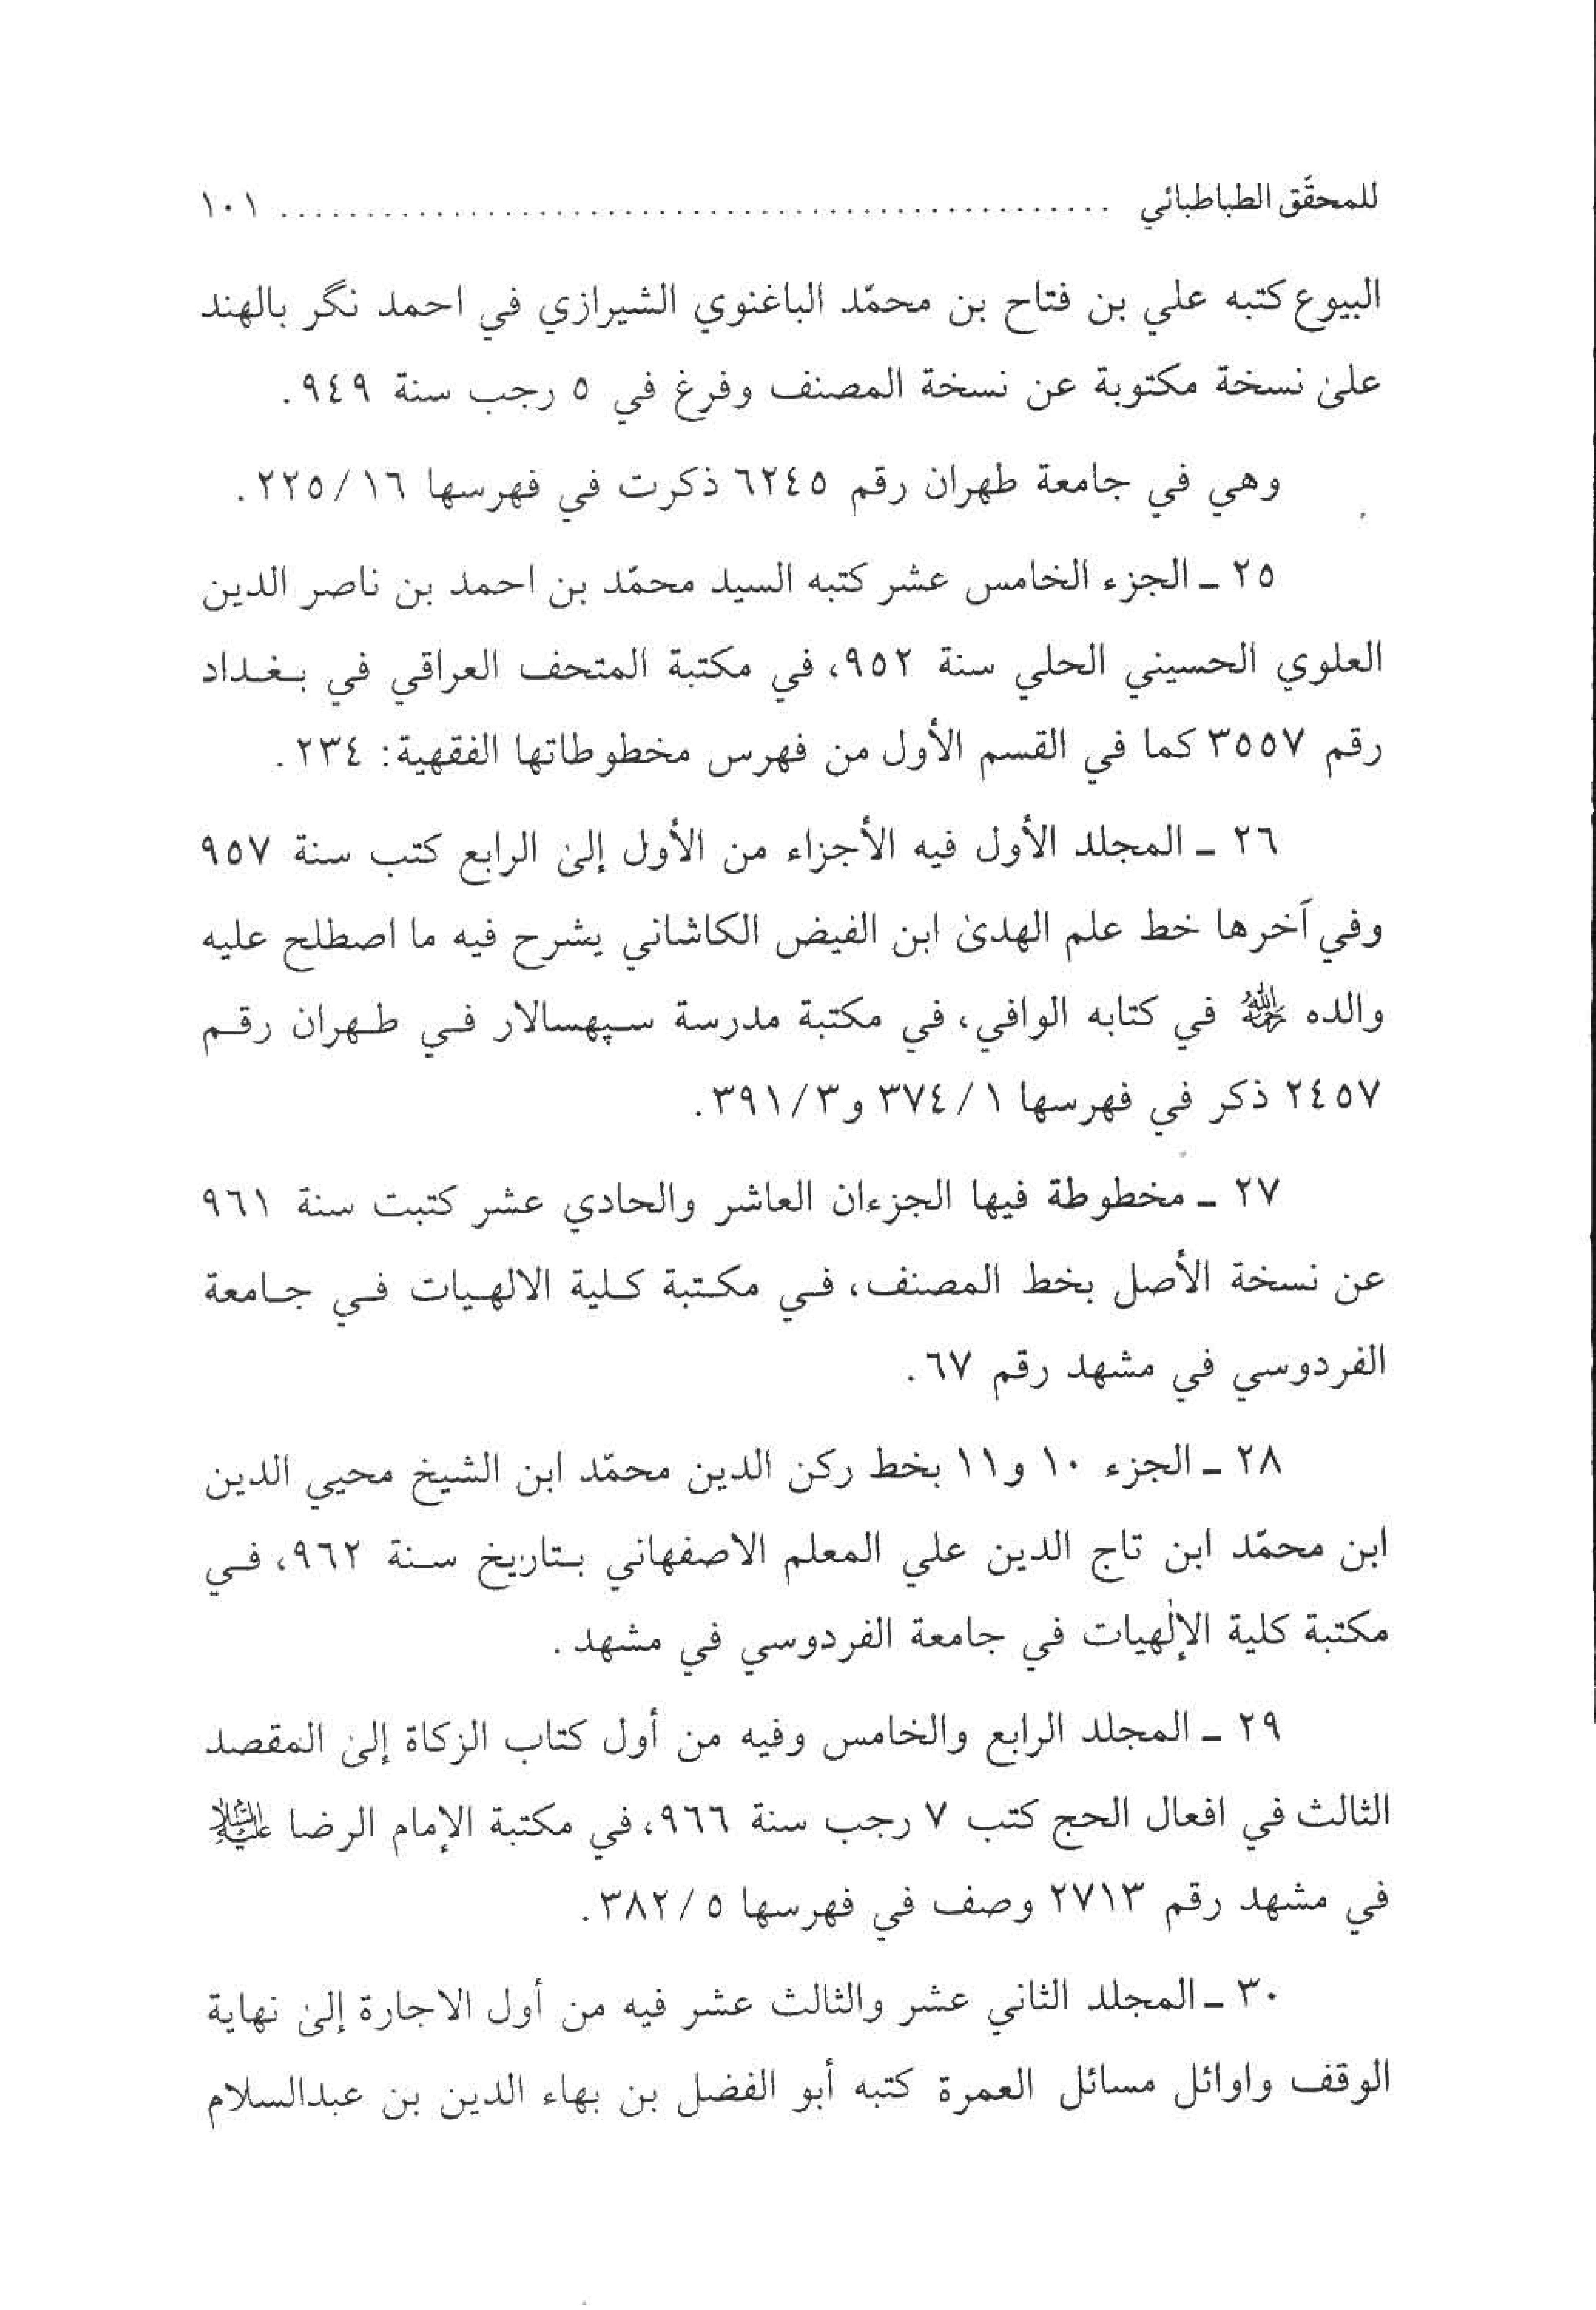 للمحقّق الطباطبائي ................................................ ١٠١
البيوع كتبه علي بن فتاح بن محمّد الباغنوي الشيرازي في احمد نگر بالهند
علىٰ نسخة مكتوبة عن نسخة المصنف وفرغ في ٥ رجب سنة ٩٤٩.
وهي في جامعة طهران رقم ٦٢٤٥ ذكرت في فهرسها ٢٢٥/١٦.
٢٥ ـ الجزء الخامس عشر كتبه السيد محمّد بن احمد بن ناصر الدين
العلوي الحسيني الحلي سنة ٩٥٢، في مكتبة المتحف العراقي في بـغـداد
رقم ٣٥٥٧ كما في القسم الأول من فهرس مخطوطاتها الفقهية: ٢٣٤.
٢٦ ـ المجلد الأول فيه الأجزاء من الأول إلىٰ الرابع كتب سنة ٩٥٧
وفي آخرها خط علم الهدىٰ ابن الفيض الكاشاني يشرح فيه ما اصطلح عليه
والده رحمه الله في كتابه الوافي، في مكتبة مدرسة سـپهسالار فـي طـهران رقـم
٢٤٥٧ ذكر في فهرسها ٣٧٤/١ و٣٩١/٣.
٢٧ ـ مخطوطة فيها الجزءان العاشر والحادي عشر كتبت سنة ٩٦١
عن نسخة الأصل بخط المصنف، فـي مكـتبة كـلية الالهـيات فـي جـامعة
الفردوسي في مشهد رقم ٦٧.
٢٨ ـ الجزء ١٠ و١١ بخط ركن الدين محمّد ابن الشيخ محيي الدين
ابن محمّد ابن تاج الدين علي المعلم الاصفهاني بـتاريخ سـنة ٩٦٢، فـي
مكتبة كلية الإلٰهيات في جامعة الفردوسي في مشهد.
٢٩ ـ المجلد الرابع والخامس وفيه من أول كتاب الزكاة إلىٰ المقصد
الثالث في افعال الحج كتب ٧ رجب سنة ٩٦٦، في مكتبة الإمام الرضا عليه السلام
في مشهد رقم ٢٧١٣ وصف في فهرسها ٣٨٢/٥.
٣٠ ـ المجلد الثاني عشر والثالث عشر فيه من أول الاجارة إلىٰ نهاية
الوقف واوائل مسائل العمرة كتبه أبو الفضل بن بهاء الدين بن عبدالسلام